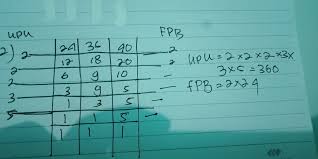 UPU FPB
2) 2 24 36 40 2
2 12 18 20 2
2 6 9 10 -
3 3 9 5 -
3 1 3 5 -
5 1 1 5 -
1 1 1
UPU = 2 x 2 x 2 x 3 x
3 x 5 = 360
FPB = 2 x 2 4